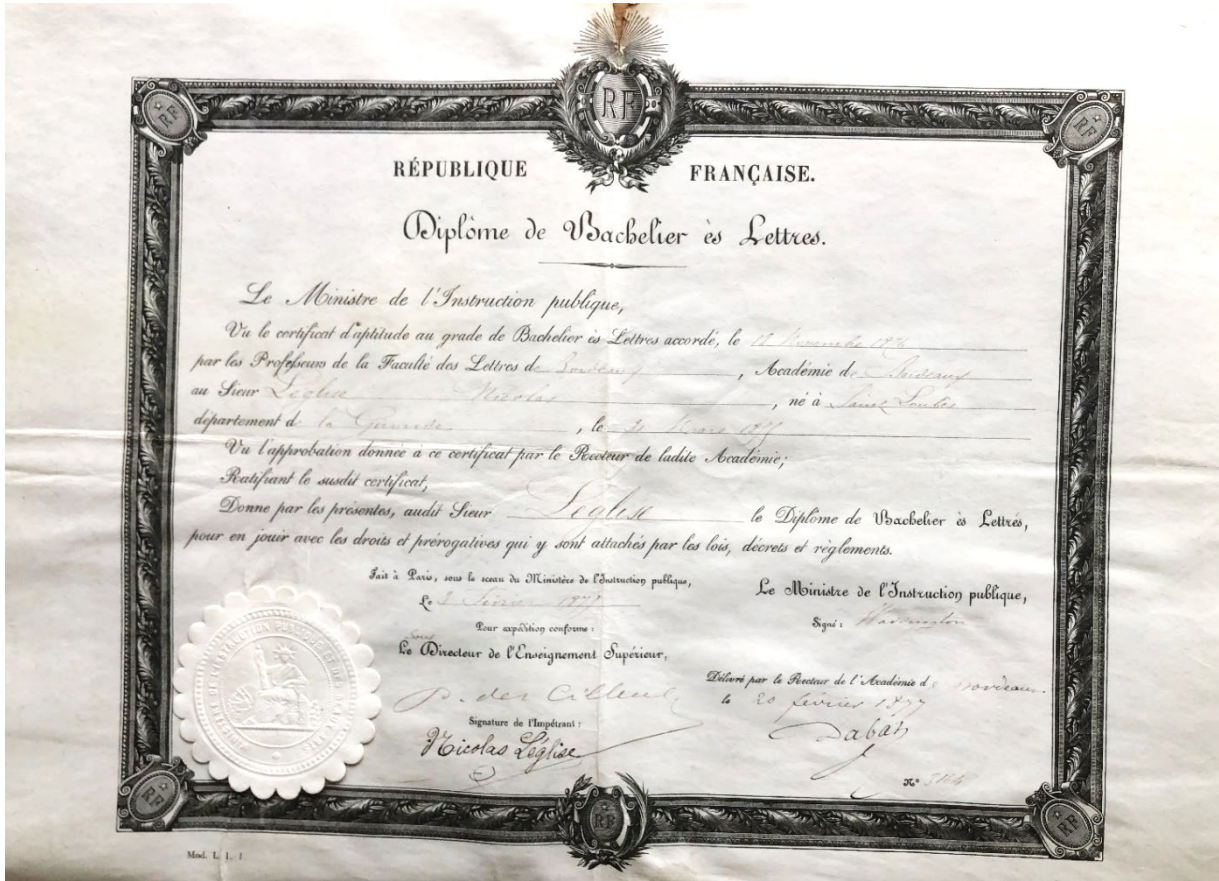 RF
RF
RF
RÉPUBLIQUE FRANÇAISE.
Diplôme de Bachelier ès Lettres.
Le Ministre de l'Instruction publique,
Vu le certificat d'aptitude au grade de Bachelier ès Lettres accordé, le Novembre 1876
par les Professeurs de la Faculté des Lettres de Bordeaux, Académie de Bordeaux
au Sieur Léglise Nicolas, né à Saint Loubès
département de la Gironde, le 31 Mars
Vu l'approbation donnée à ce certificat par le Recteur de ladite Académie;
Ratifiant le susdit certificat,
Donne par les présentes, audit Sieur Léglise le Diplôme de Bachelier ès Lettres,
pour en jouir avec les droits et prérogatives qui y sont attachés par les lois, décrets et règlements.
Fait à Paris, sous le sceau du Ministère de l'Instruction publique,
Le 2 Février 1877
Pour expédition conforme:
Le Sous Directeur de l'Enseignement Supérieur,
Signature de l'Impétrant:
Nicolas Léglise
Le Ministre de l'Instruction publique,
Signé: Waddington
Délivré par le Recteur de l'Académie de Bordeaux
le 20 février 1877
Dabas
N°
MINISTÈRE DE L'INSTRUCTION PUBLIQUE ET DES BEAUX ARTS
RF
RF
RF
Mod. L. l. 1